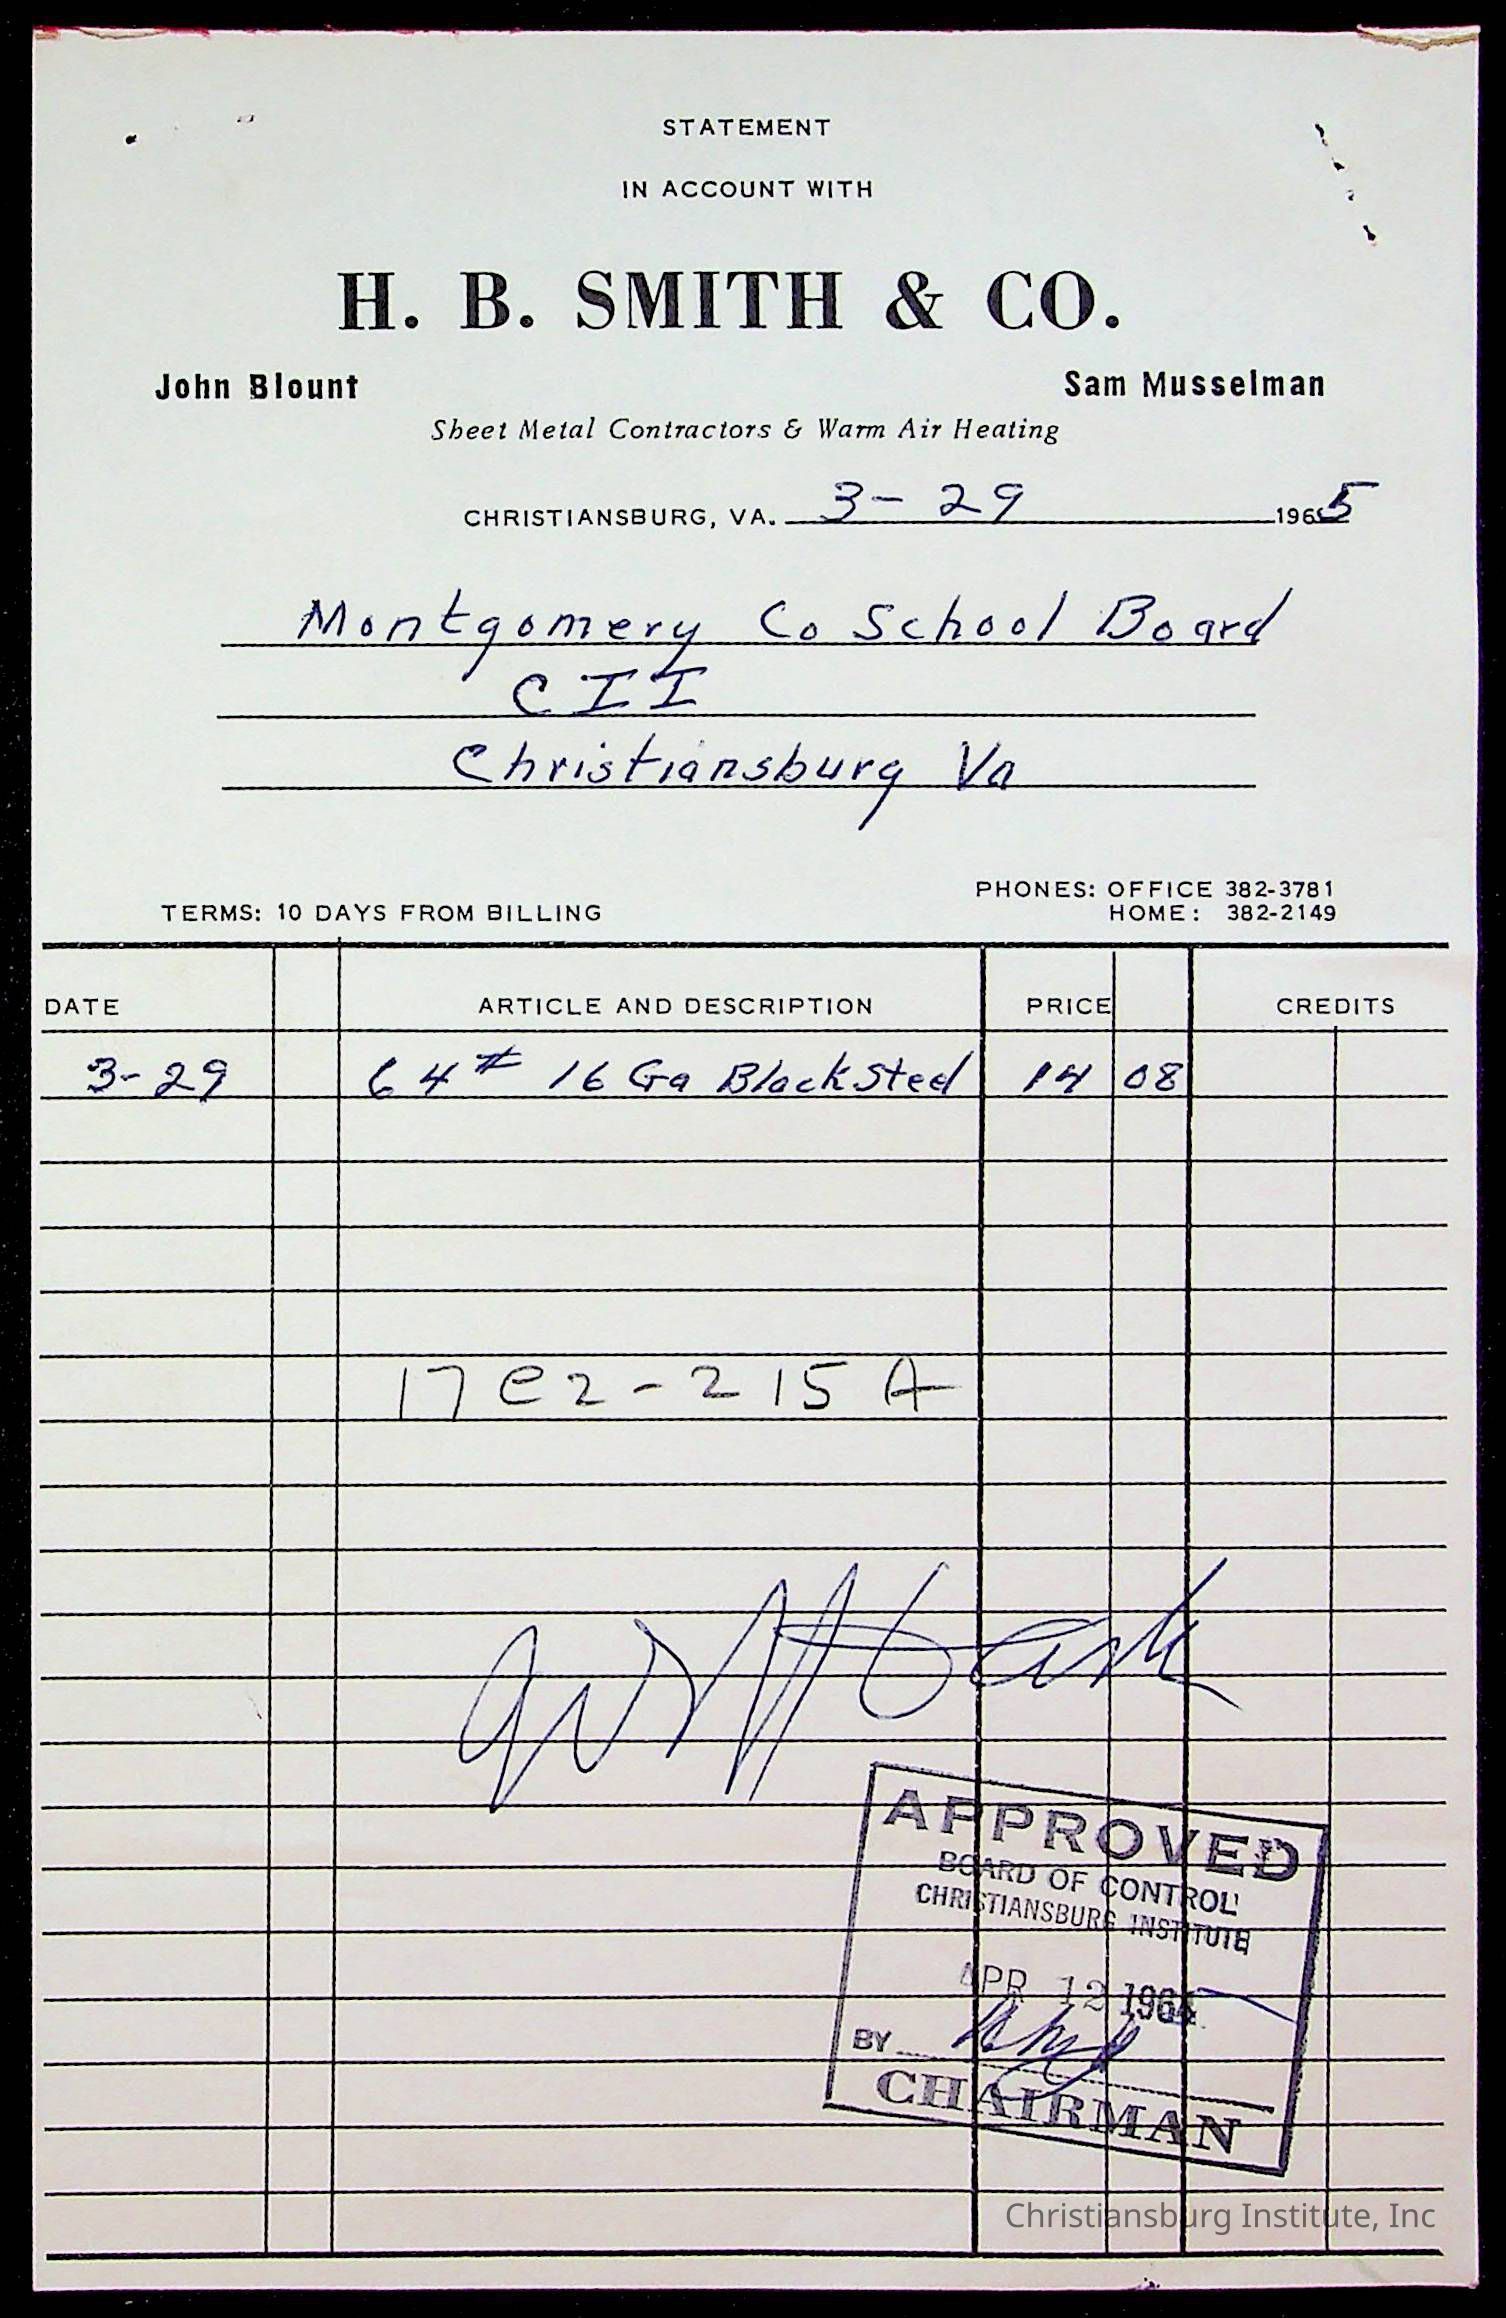 STATEMENT
IN ACCOUNT WITH
H. B. SMITH & CO.
John Blount Sam Musselman
Sheet Metal Contractors & Warm Air Heating
CHRISTIANSBURG, VA. 3-29 1965
Montgomery Co School Board
CII
Christiansburg Va
TERMS: 10 DAYS FROM BILLING
PHONES: OFFICE 382-3781
HOME: 382-2149
DATE ARTICLE AND DESCRIPTION PRICE CREDITS
3-29 64# 16 Ga Black Steel 14 08
17e2-215A
APPROVED
BOARD OF CONTROL
CHRISTIANSBURG INSTITUTE
APR 12 196
BY
CHAIRMAN
Christiansburg Institute, Inc